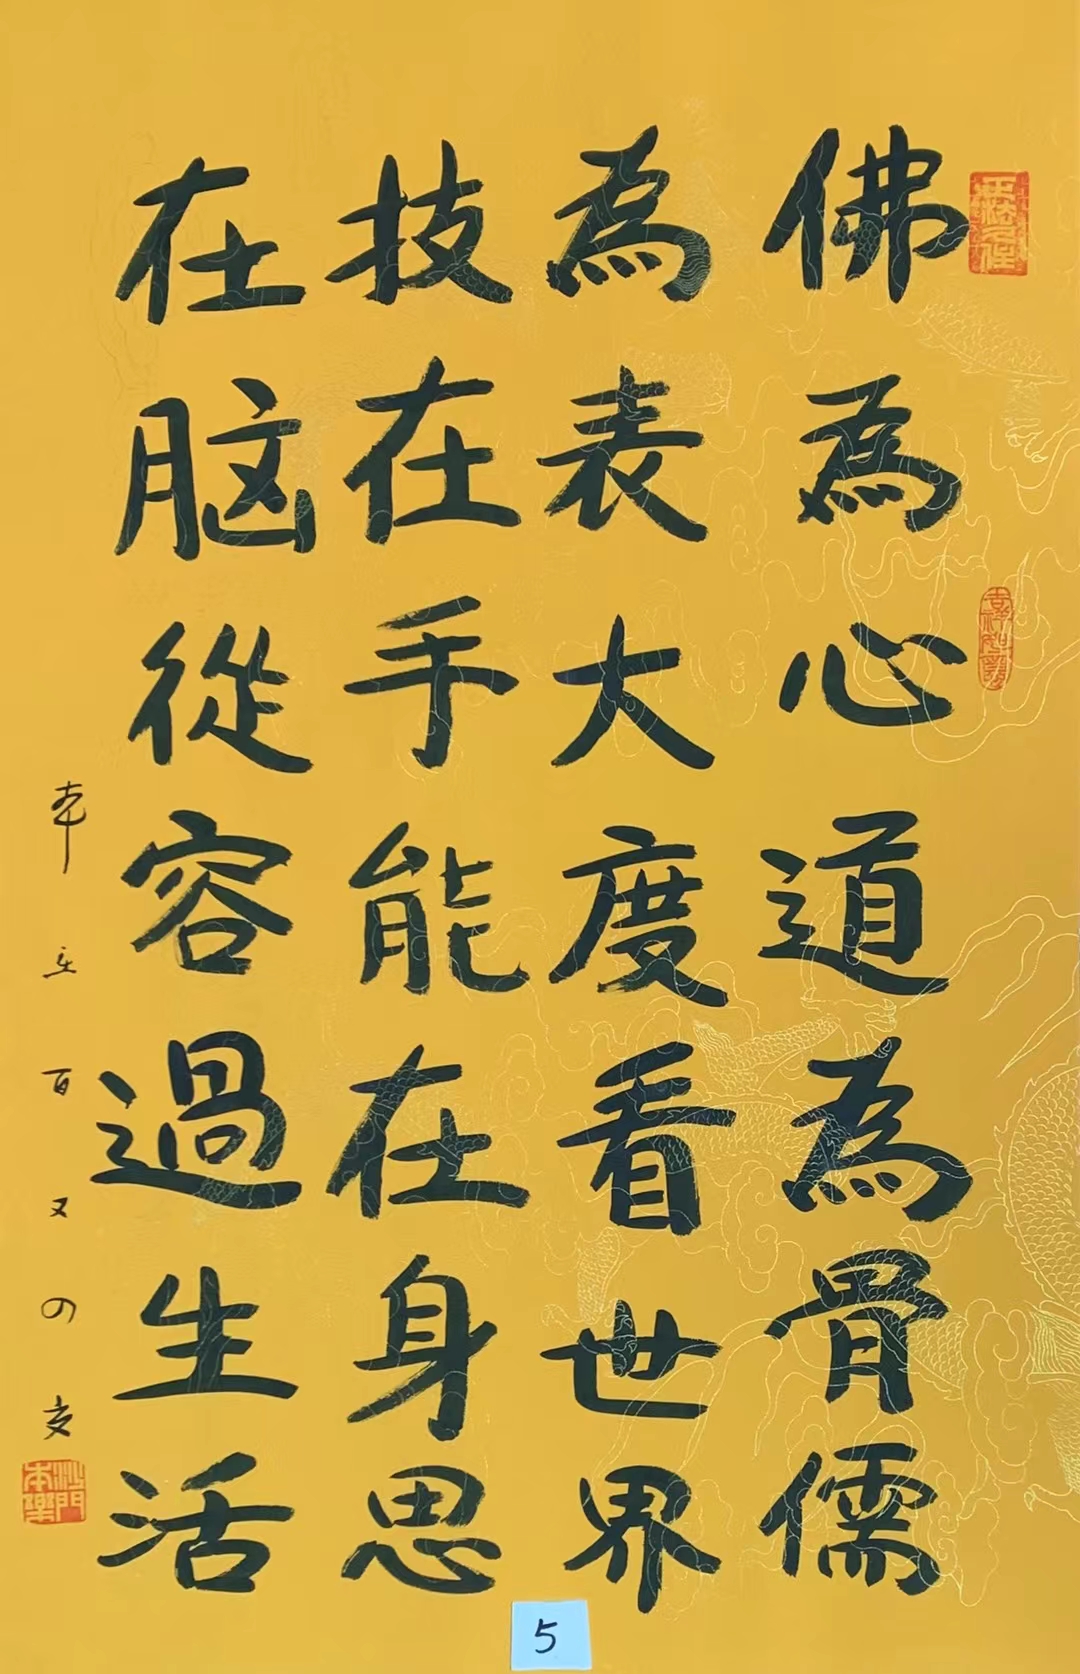 佛為心道為骨儒
為表大度看世界
技在手能在身思
在脑從容過生活
5